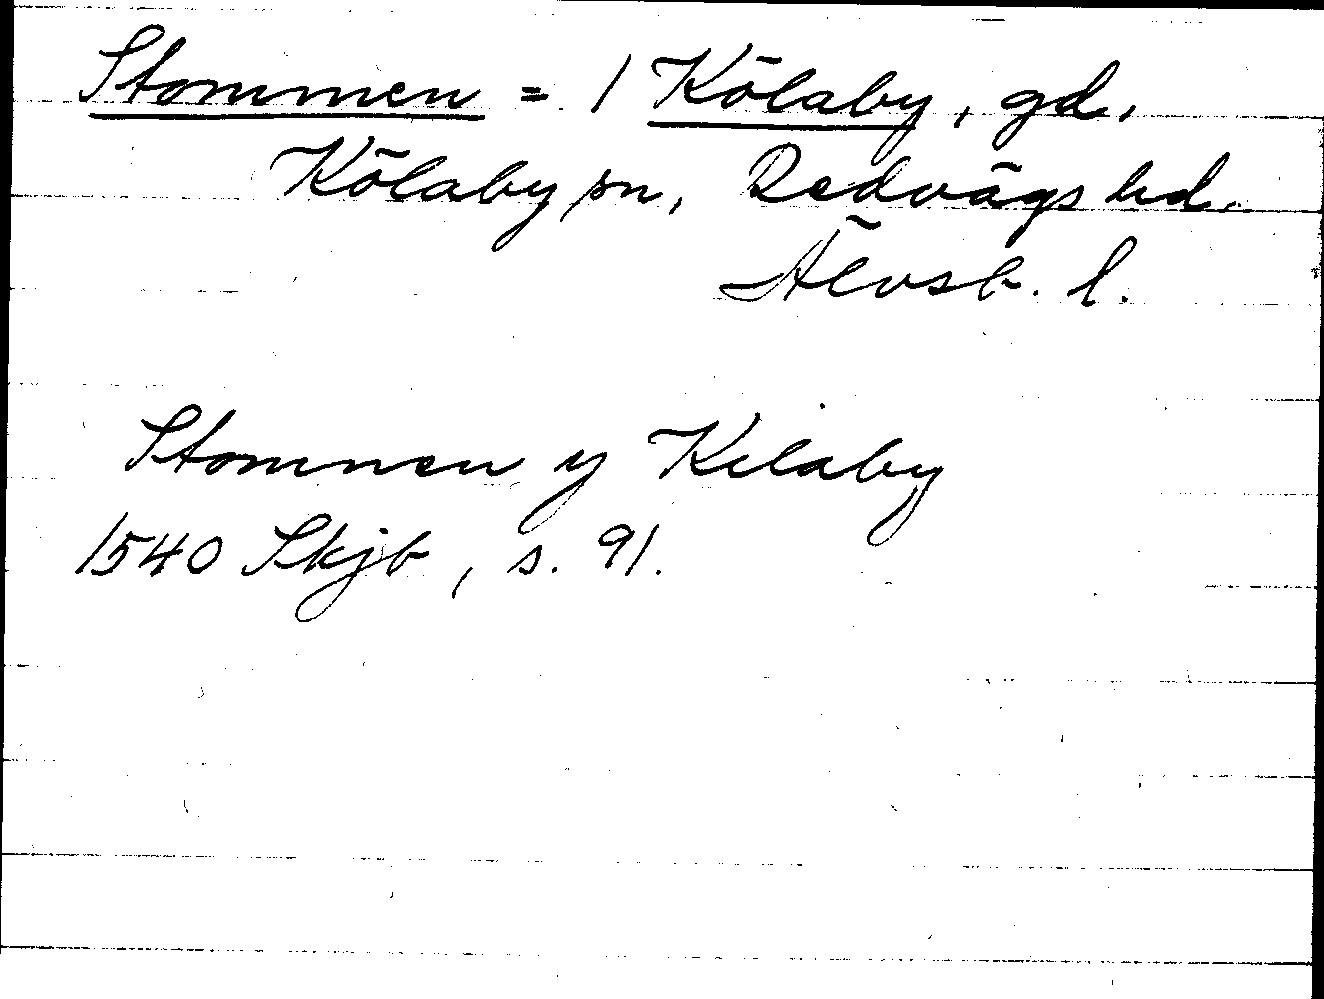 Stommen = 1 Kölaby, gd.
Kölaby sn, Redvägs hd.
Älvsb. l.
Stommen y Kilaby
1540 Skjb, s. 91.